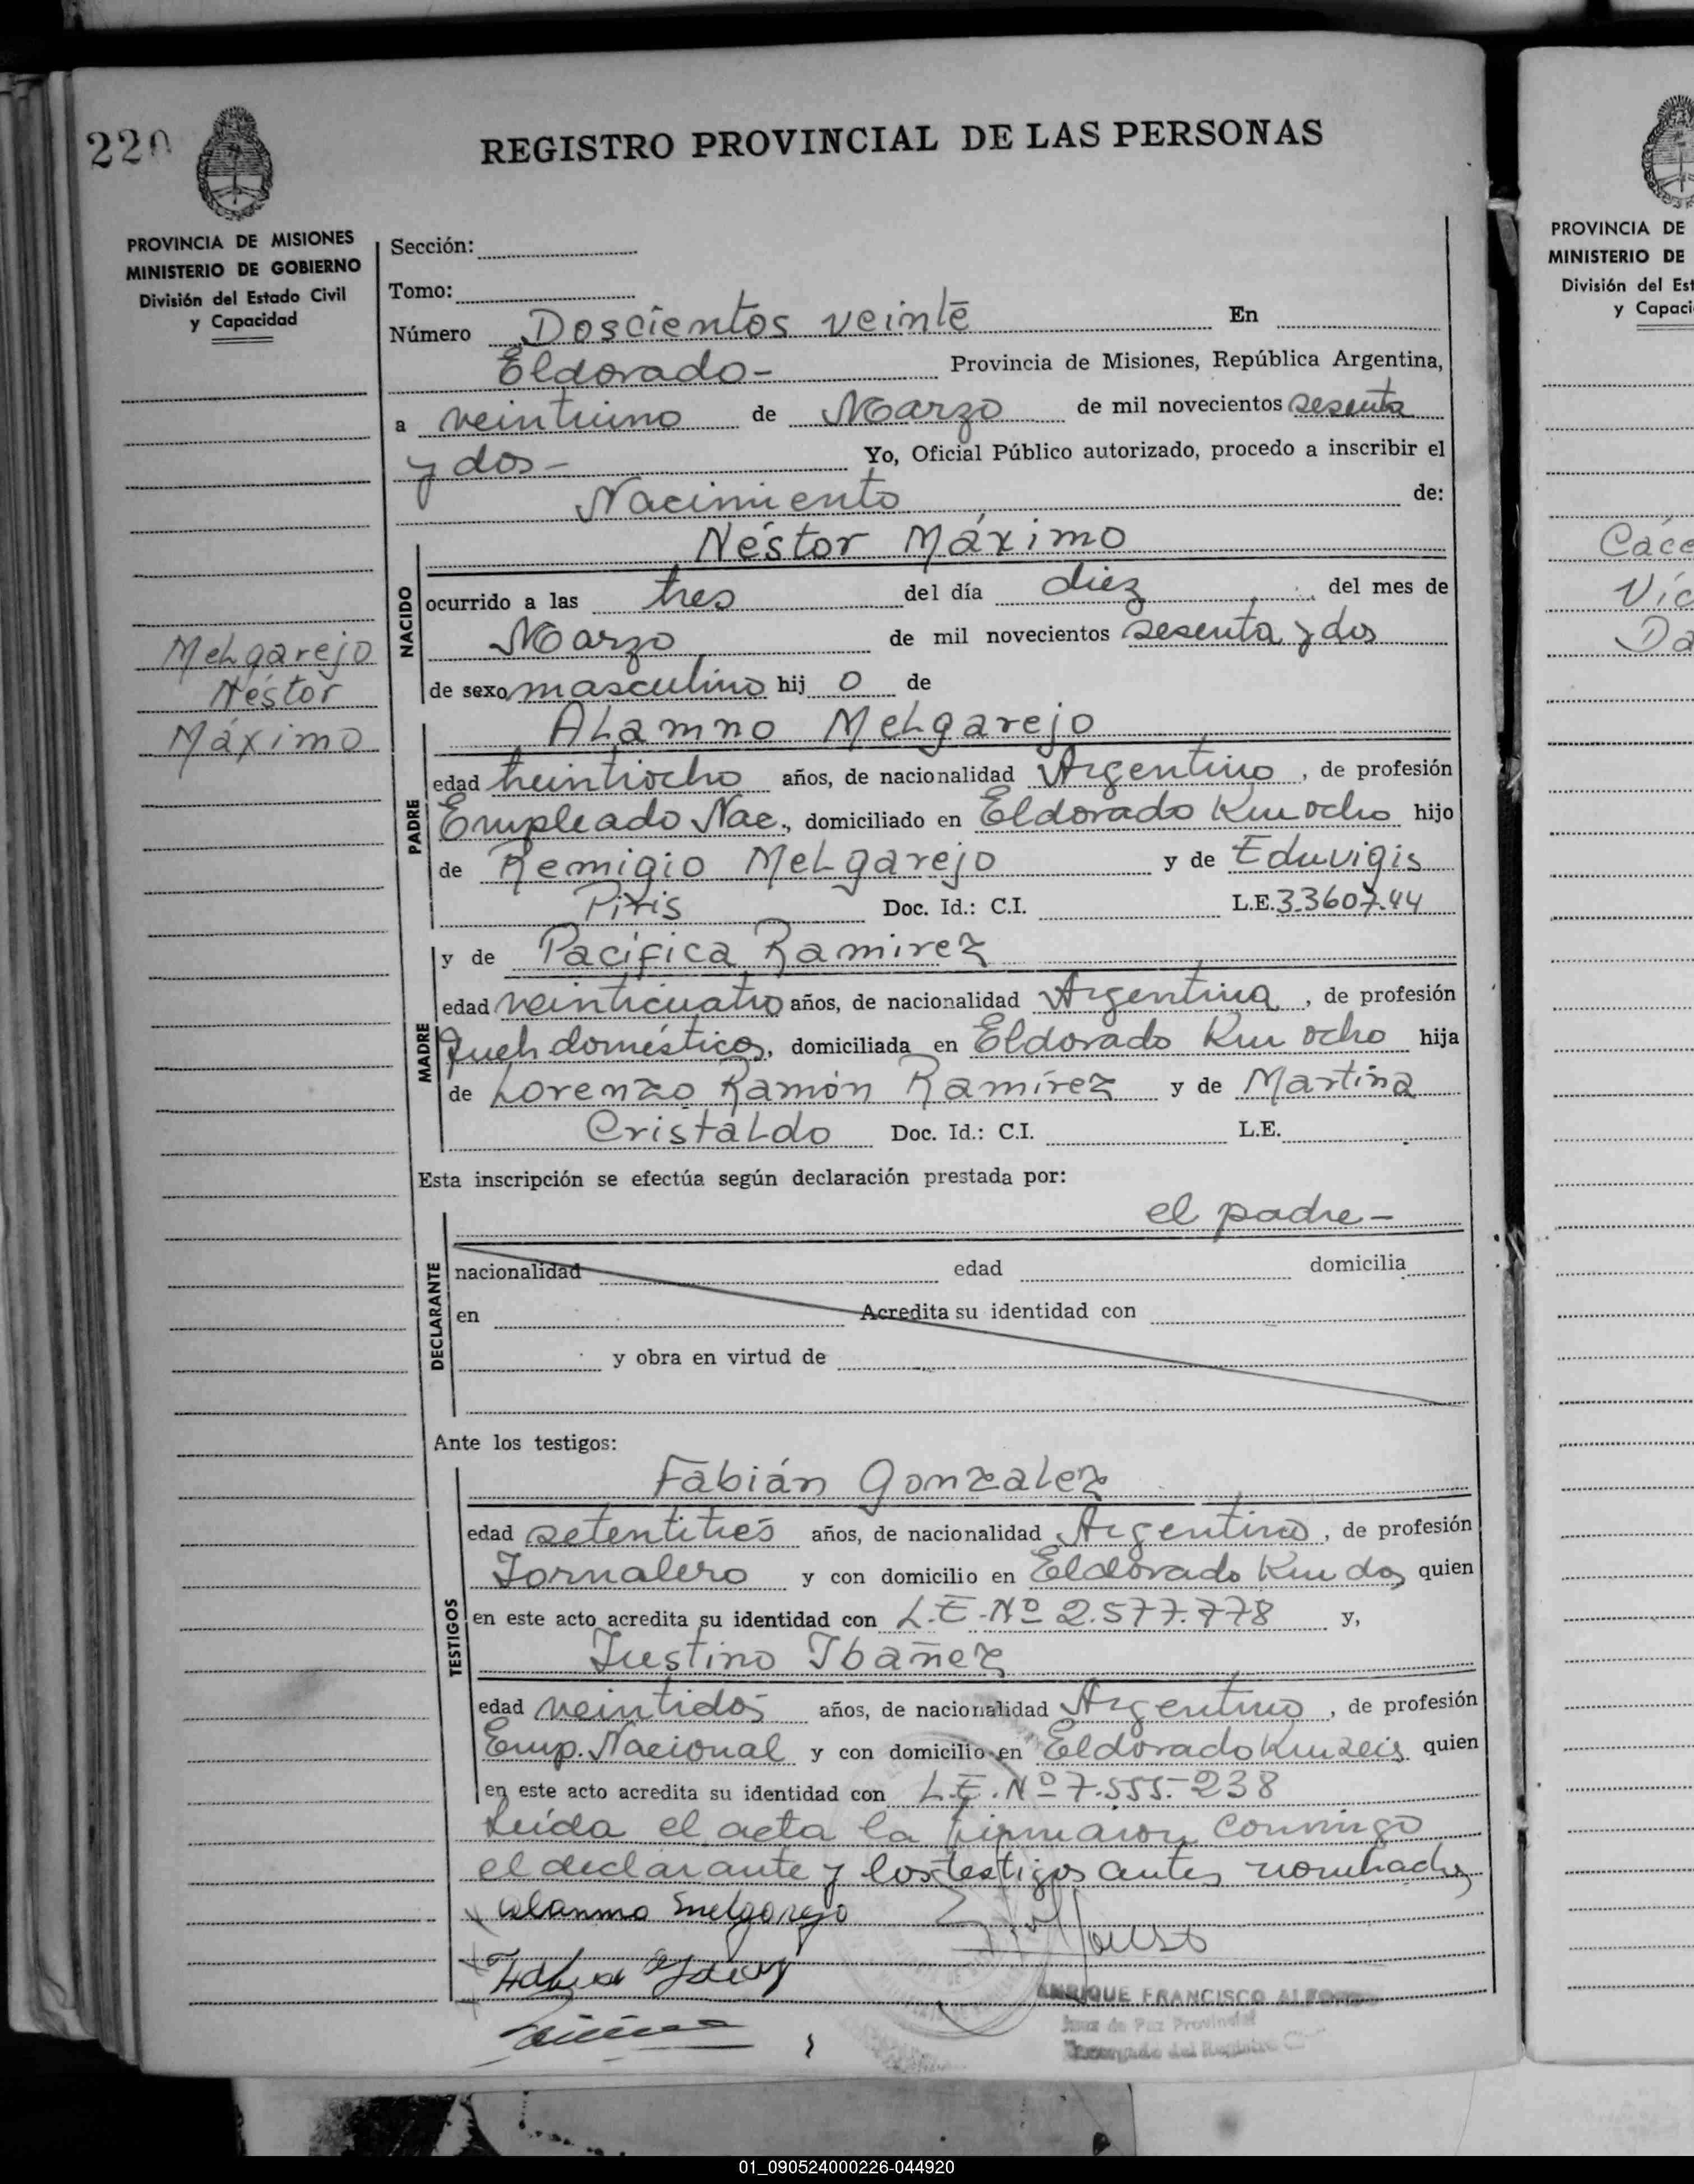 220
REGISTRO PROVINCIAL DE LAS PERSONAS
PROVINCIA DE MISIONES
MINISTERIO DE GOBIERNO
División del Estado Civil
y Capacidad
Melgarejo
Néstor
Máximo
Sección:
Tomo:
Número Doscientos veinte En
Eldorado- Provincia de Misiones, República Argentina,
a veintiuno de Marzo de mil novecientos sesenta
y dos- Yo, Oficial Público autorizado, procedo a inscribir el
Nacimiento de:
NACIDO
Néstor Máximo
ocurrido a las tres del día diez del mes de
Marzo de mil novecientos sesenta y dos
de sexo masculino hij o de
PADRE
Alamno Melgarejo
edad treintiocho años, de nacionalidad Argentino, de profesión
Empleado Nac., domiciliado en Eldorado Km ocho hijo
de Remigio Melgarejo y de Eduvigis
Piris Doc. Id.: C.I. L.E. 3.3607.44
MADRE
y de Pacífica Ramirez
edad veinticuatro años, de nacionalidad Argentina, de profesión
domiciliada en Eldorado Km ocho hija
de Lorenzo Ramón Ramírez y de Martina
Cristaldo Doc. Id.: C.I. L.E.
Esta inscripción se efectúa según declaración prestada por:
DECLARANTE
el padre-
nacionalidad edad domicilia
en Acredita su identidad con
y obra en virtud de
Ante los testigos:
TESTIGOS
Fabián Gonzalez
edad setentitrés años, de nacionalidad Argentino, de profesión
Jornalero y con domicilio en Eldorado Km dos, quien
en este acto acredita su identidad con L.E.-Nº 2.577.778 y,
Justino Ibañez
edad veintidos años, de nacionalidad Argentino, de profesión
Emp. Nacional y con domicilio en Eldorado Km seis quien
en este acto acredita su identidad con L.E. Nº 7.555.238
Leída el acta la firmaron conmigo
el declarante y los testigos antes nombrados
Alanmo Melgarejo
ENRIQUE FRANCISCO ALFONSO
Juez de Paz Provincial
Encargado del Registro
PROVINCIA DE
MINISTERIO DE
División del Est
y Capaci
Cáce
Víc
Da
01_090524000226-044920